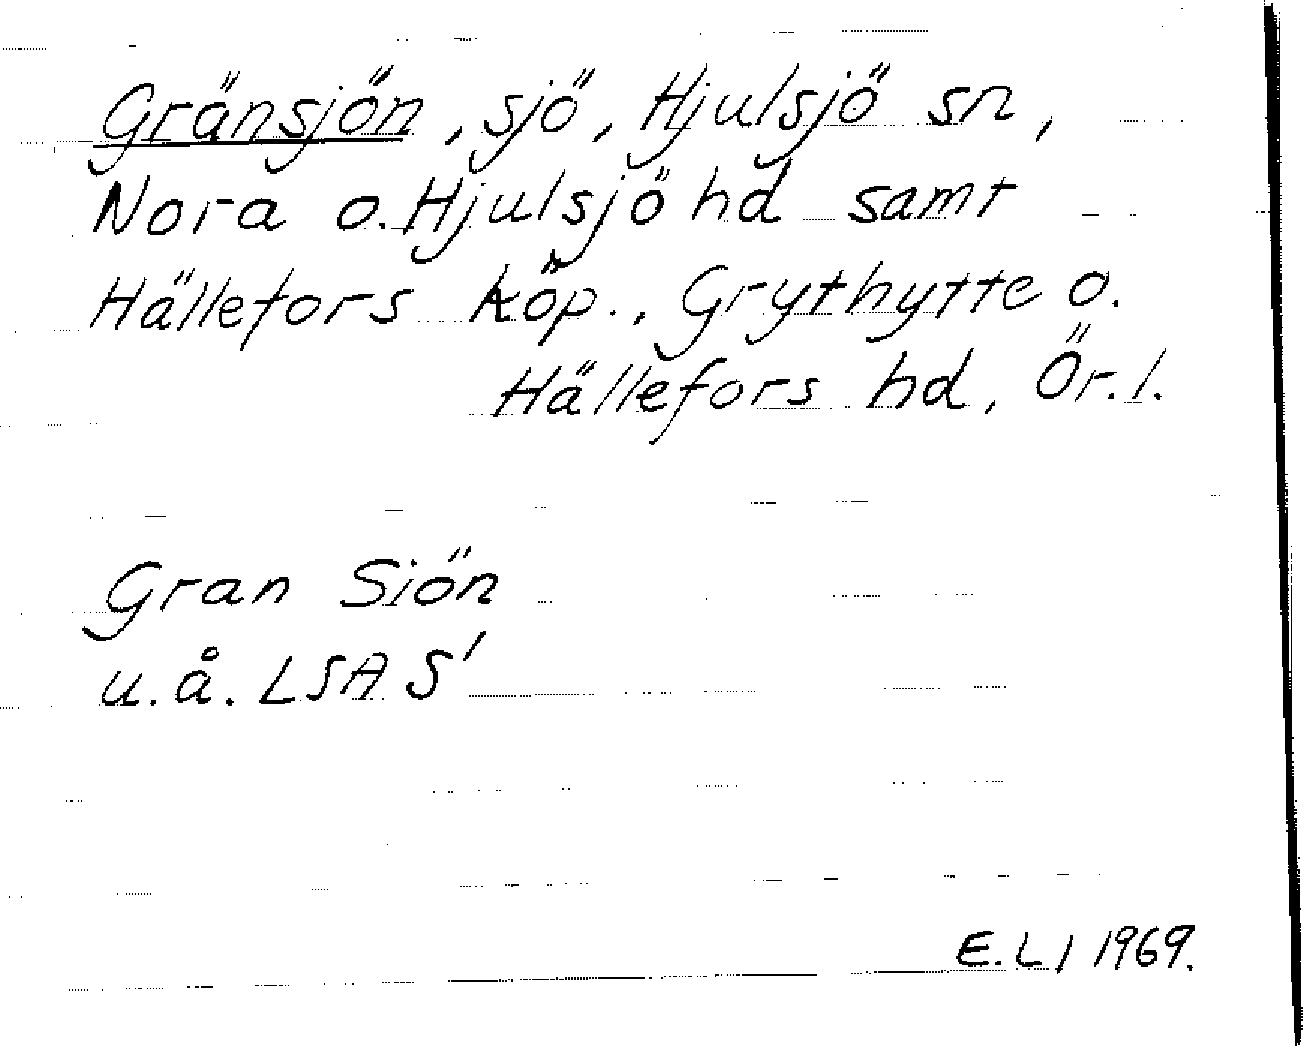 Gränsjön, sjö, Hjulsjö sn,
Nora o. Hjulsjö hd samt
Hällefors köp., Grythytte o.
Hällefors hd, Ör. l.
Gran Siön
u. å. LSA S'
E. Lj 1969.